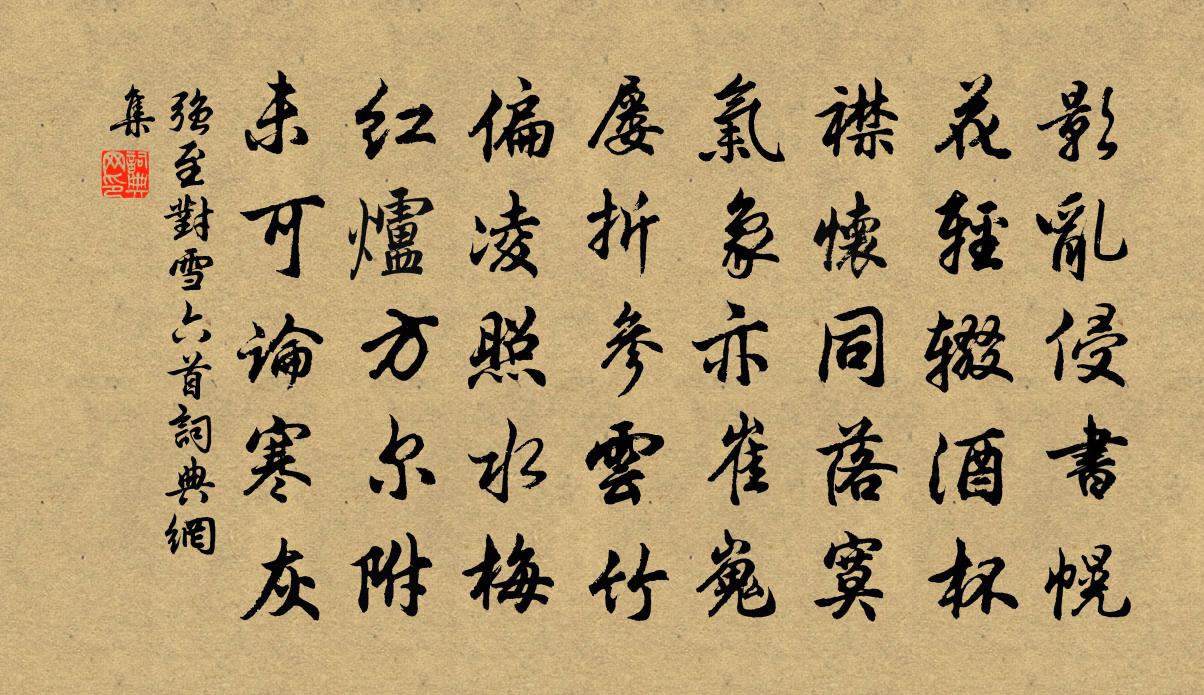 影亂侵書幌
花輕輟酒杯
襟懷同落寞
氣象亦崔嵬
屡折參雲竹
偏凌照水梅
红爐方尔附
未可論寒灰
强至對雪六首詞典網
集
詞典
网印